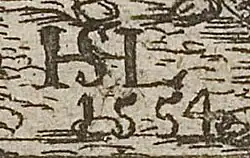 HSL
1554